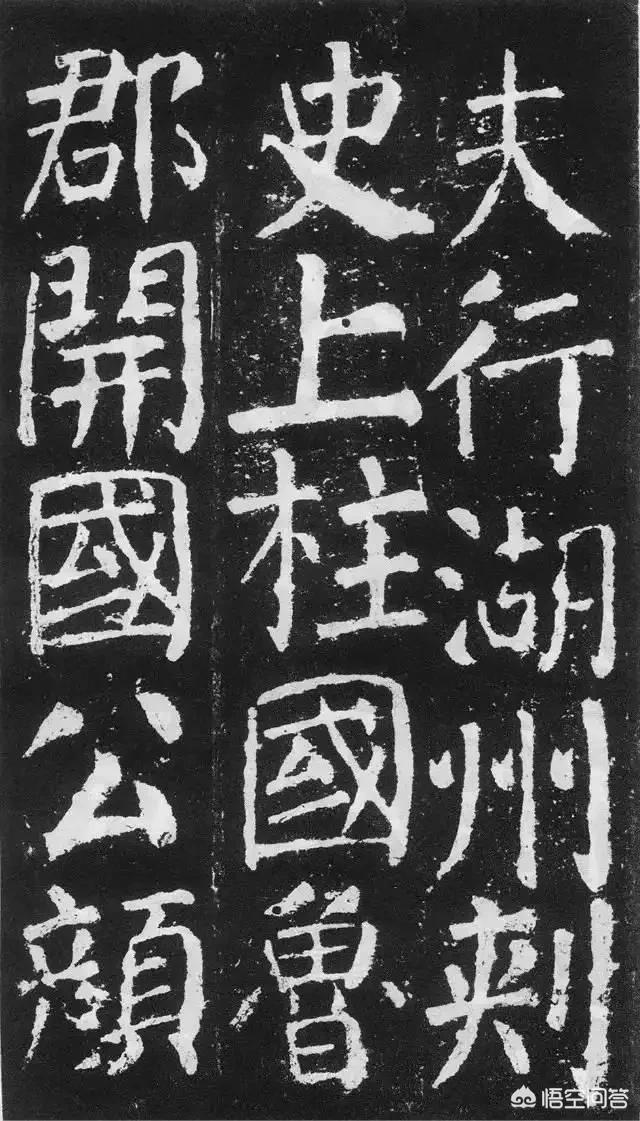 夫行湖州刺
史上柱國魯
郡開國公顏
悟空问答